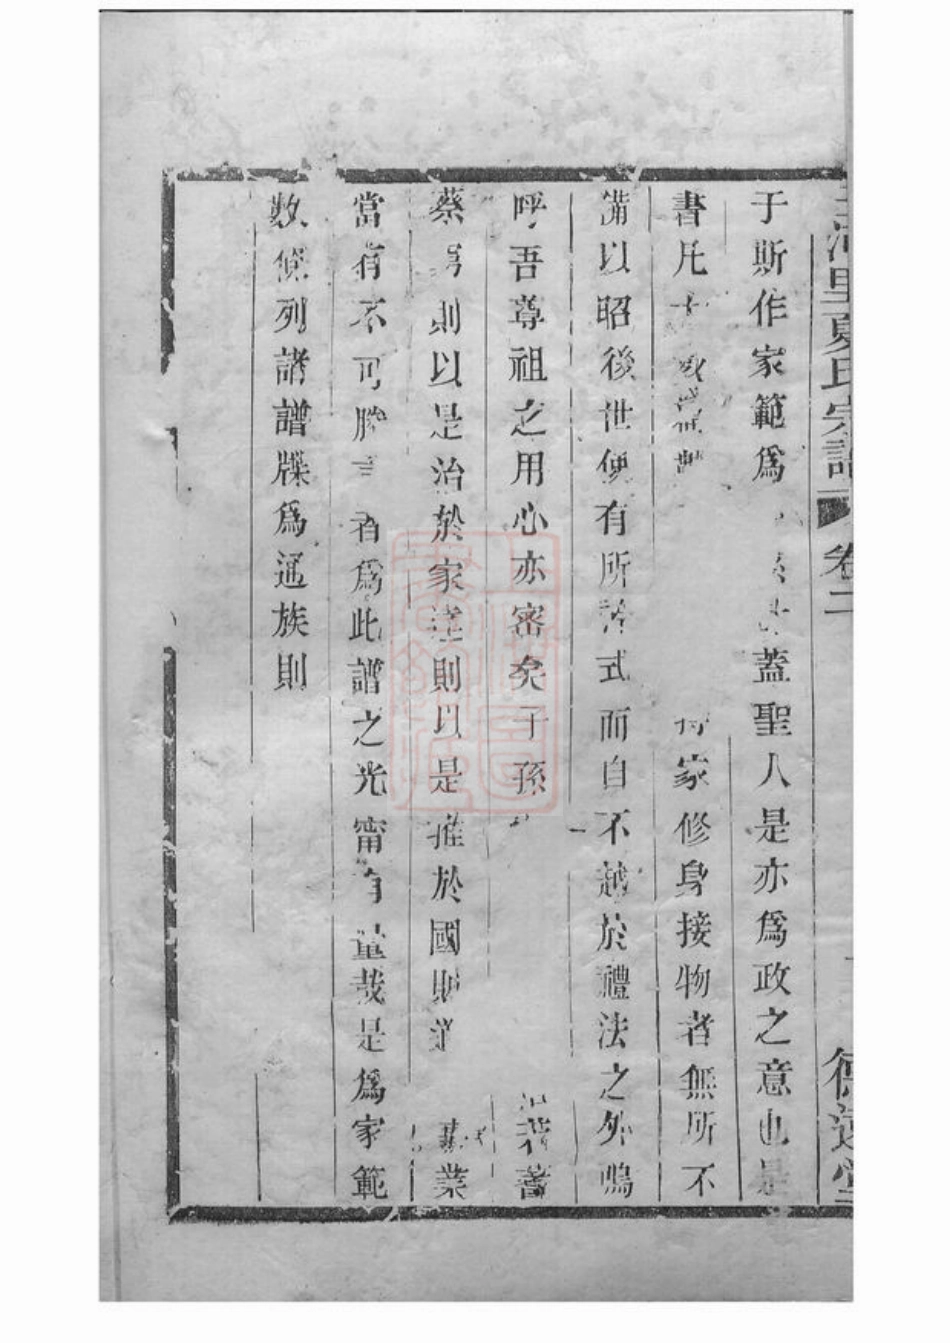 河里夏氏宗譜 卷二 德遠堂
于斯作家範爲 蓋聖人是亦爲政之意也是
書凡十 家修身接物者無所不
備以昭後世使有所 式而自不越於禮法之外嗚
呼吾尊祖之用心亦密矣子孫 若蓍
蔡焉則以是治於家 則以是推於國則 業
當有不可勝言者爲此譜之光甯有量哉是爲家範
數條列諸譜牒爲通族則